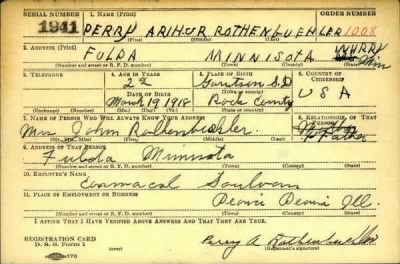 SERIAL NUMBER 1. NAME (Print) ORDER NUMBER
1941 PERRY ARTHUR ROTHENBUEHLER 1008
(First) (Middle) (Last)
2. ADDRESS (Print)
FULDA MINNISOTA MURRY
(Number and street or R. F. D. number) (Town) (County) (State)
3. TELEPHONE 4. AGE IN YEARS 5. PLACE OF BIRTH 6. COUNTRY OF CITIZENSHIP
22 Garitson S.D
DATE OF BIRTH (Town or county)
March 19, 1918 Rock County U S A
(Exchange) (No.) (Mo.) (Day) (Yr.) (State or country)
7. NAME OF PERSON WHO WILL ALWAYS KNOW YOUR ADDRESS 8. RELATIONSHIP OF THAT PERSON
Mrs John Rothenbuehler Father
(Mr., Mrs., Miss) (First) (Middle) (Last)
9. ADDRESS OF THAT PERSON
Fulda Minnisota
(Number and street or R. F. D. number) (Town) (County) (State)
10. EMPLOYER'S NAME
11. PLACE OF EMPLOYMENT OR BUSINESS
Peoria Peoria Ill.
(Number and street or R. F. D. number) (Town) (County) (State)
I AFFIRM THAT I HAVE VERIFIED ABOVE ANSWERS AND THAT THEY ARE TRUE.
REGISTRATION CARD
D. S. S. Form 1
Perry A Rothenbuehler
(Registrant's signature)